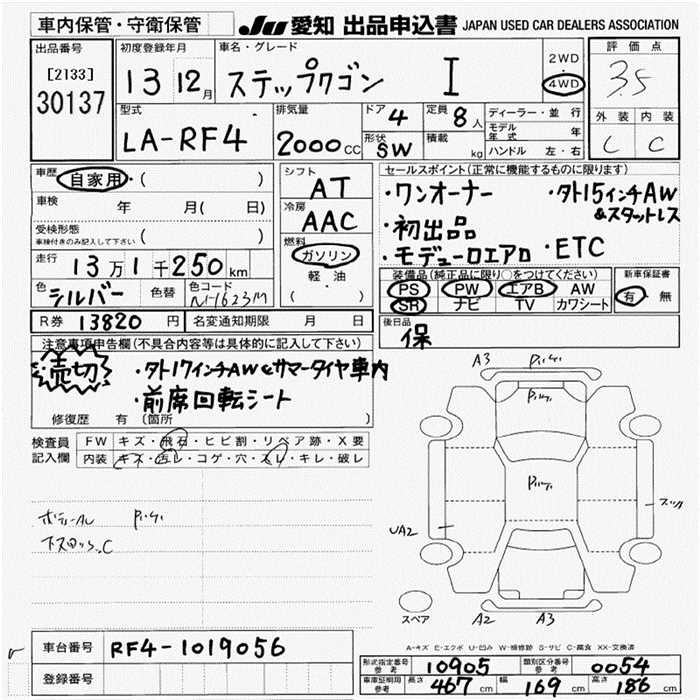 車内保管・守衛保管
JU 愛知 出品申込書 JAPAN USED CAR DEALERS ASSOCIATION
出品番号
[2133]
30137
初度登録年月
13 12月
車名・グレード
ステップワゴン I
2WD
・
4WD
評価点
3.5
型式
LA-RF4
排気量
2000 CC
ドア 4
定員 8人
形状 SW
積載 kg
ディーラー・並行
モデル年式 年
ハンドル 左・右
外装 内装
C C
車歴 自家用・( )
車検 年 月( 日)
受検形態
車検付きのみ記入して下さい ( )
走行 13万1千250km
色 シルバー
色替
色コード NH623M
シフト
AT
冷房
AAC
燃料
ガソリン
軽・油
( )
セールスポイント(正常に機能するものに限ります)
・ワンオーナー
・タト15インチAW
&スタットレス
・初出品
・モデューロエアロ
・ETC
装備品(純正品に限り○をつけてください)
PS PW エアB AW
SR ナビ TV カワシート
新車保証書
有・無
R券 13820円
名変通知期限 月 日
後日品
保
注意事項申告欄(不具合内容等は具体的に記入して下さい)
売切
・タト17インチAW&サマータイヤ車内
・前席回転シート
修復歴 有 (箇所 )
検査員記入欄
FW キズ・飛石・ヒビ割・リペア跡・X要
内装 キズ・汚レ・コゲ・穴・スレ・キレ・破レ
A3
UA2
スペア
A2 A3
A-キズ E-エクボ U-凹み W-補修跡 S-サビ C-腐食 XX-交換済
車台番号 RF4-1019056
登録番号
形式指定番号
参考
10905
類別区分番号
参考
0054
車庫証明用
参考
長さ 467cm
幅 169cm
高さ 186cm